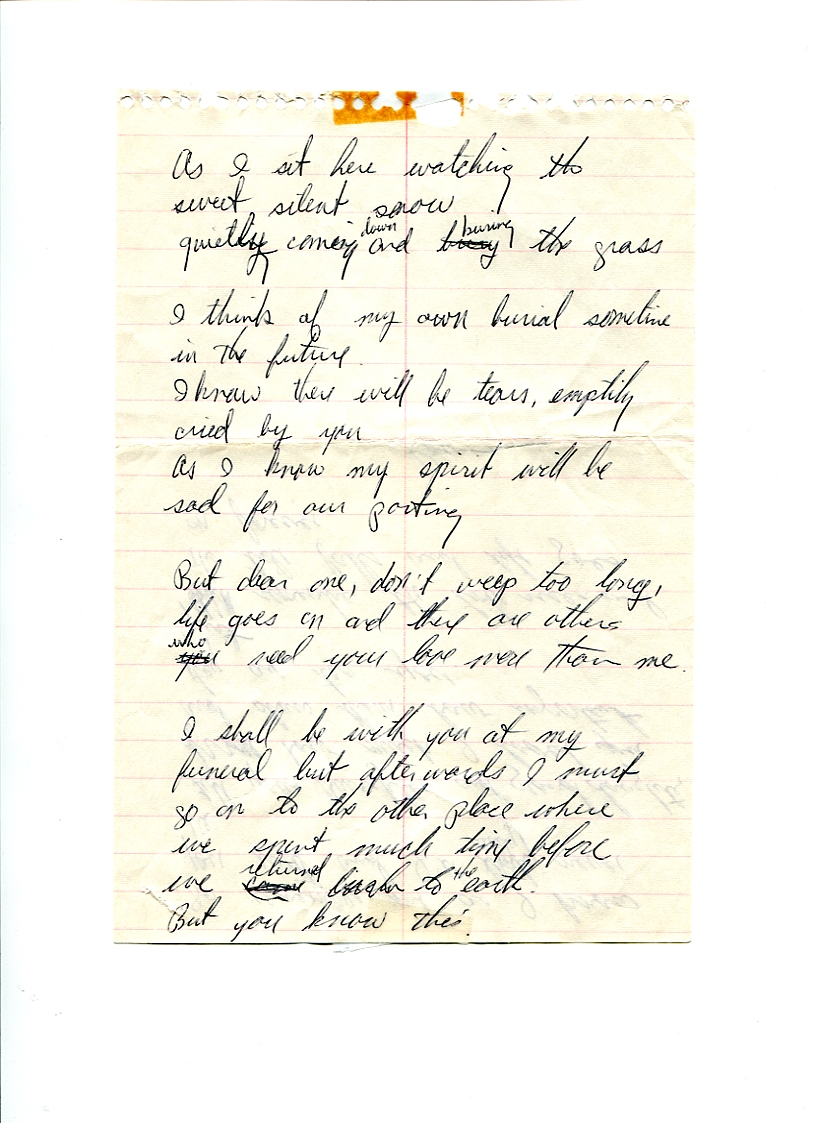 As I sit here watching the
sweet silent snow
quietly coming down and buring the grass
I think of my own burial sometime
in the future.
I know there will be tears, emptily
cried by you
As I know my spirit will be
sad for our parting
But dear one, don't weep too long,
life goes on and there are others
who need your love more than me.
I shall be with you at my
funeral but afterwards I must
go on to the other place where
we spent much time before
we returned to the earth.
But you know this.